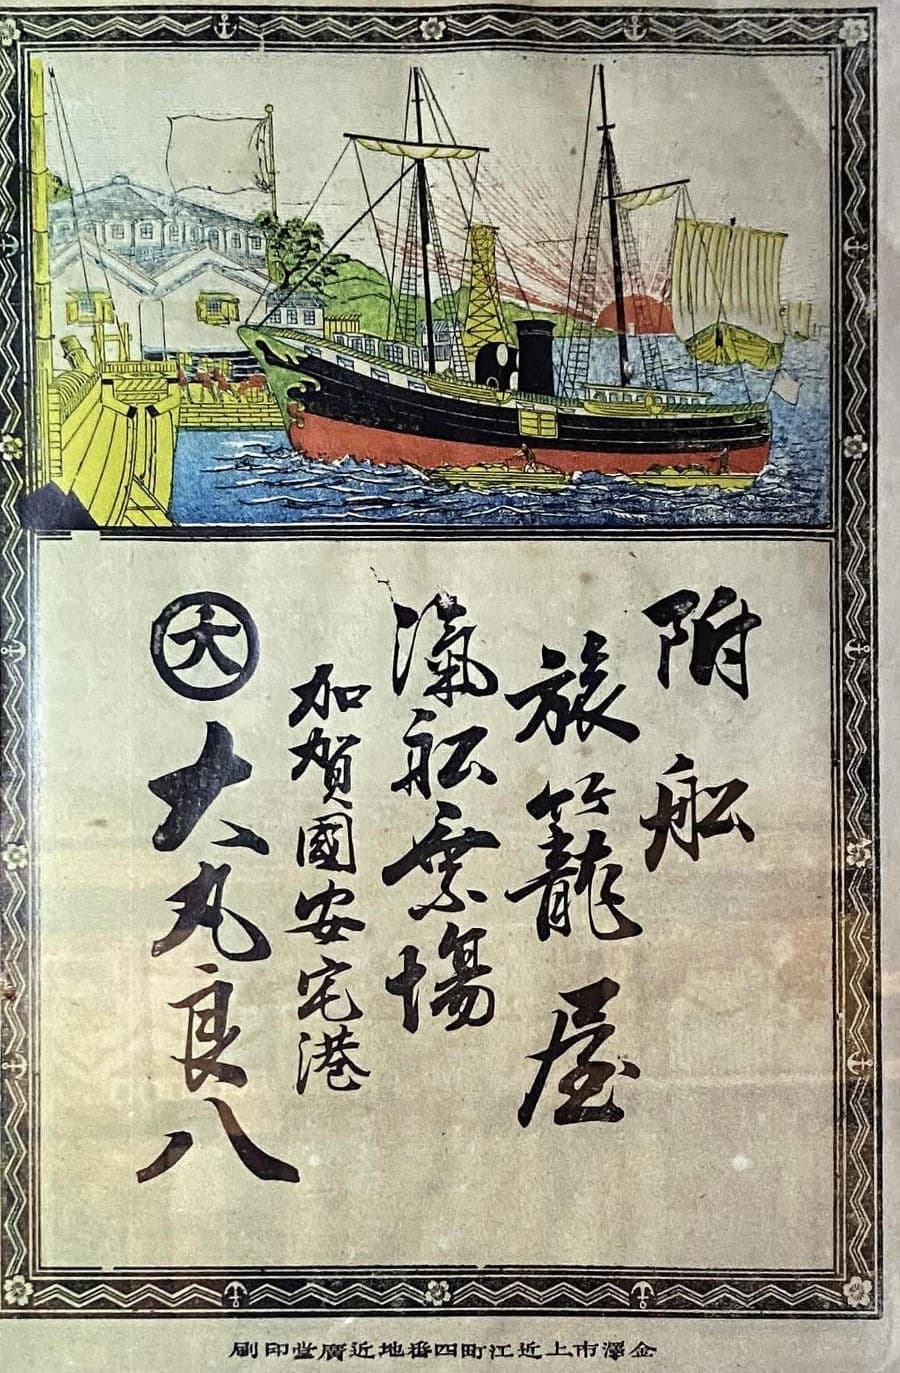 附船
旅籠屋
滊舩乗塲
加賀國安宅港
大 大丸良八
金澤市上近江町四番地近廣堂印刷